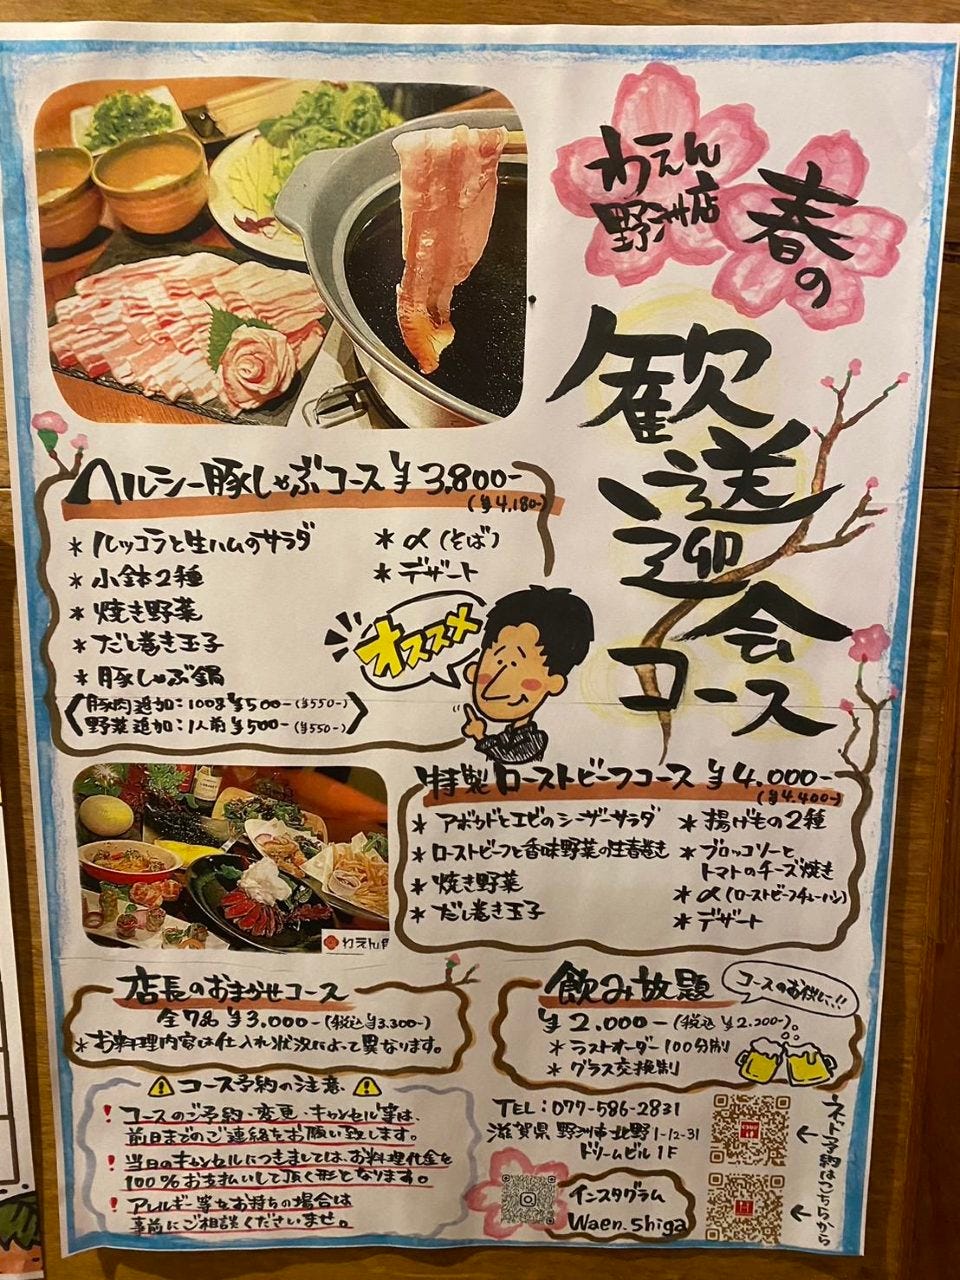 わえん
野洲店
春の
歓送迎会
コース
ヘルシー豚しゃぶコース ¥3,800-
(¥4,180-)
＊ルッコラと生ハムのサラダ
＊小鉢2種
＊焼き野菜
＊だし巻き玉子
＊豚しゃぶ鍋
＊〆(そば)
＊デザート
豚肉追加：100g ¥500-(¥550-)
野菜追加：1人前 ¥500-(¥550-)
オススメ
特製ローストビーフコース ¥4,000-
(¥4,400-)
＊アボカドとエビのシーザーサラダ
＊ローストビーフと香味野菜の生春巻き
＊焼き野菜
＊だし巻き玉子
＊揚げもの2種
＊ブロッコリーと
トマトのチーズ焼き
＊〆(ローストビーフチャーハン)
＊デザート
わえん
店長のおまかせコース
全7品 ¥3,000-(税込¥3,300-)
＊お料理内容は仕入れ状況によって異なります。
飲み放題
コースのお供に!!
¥2,000-(税込¥2,200-)。
＊ラストオーダー100分制
＊グラス交換制
コース予約の注意
! コースのご予約・変更・キャンセル等は、
前日までのご連絡をお願い致します。
! 当日のキャンセルにつきましては、お料理代金を
100%お支払いして頂く形となります。
! アレルギー等をお持ちの場合は
事前にご相談くださいませ。
TEL：077-586-2831
滋賀県 野洲市北野1-12-31
ドリームビル1F
インスタグラム
Waen_Shiga
ネット予約はこちらから